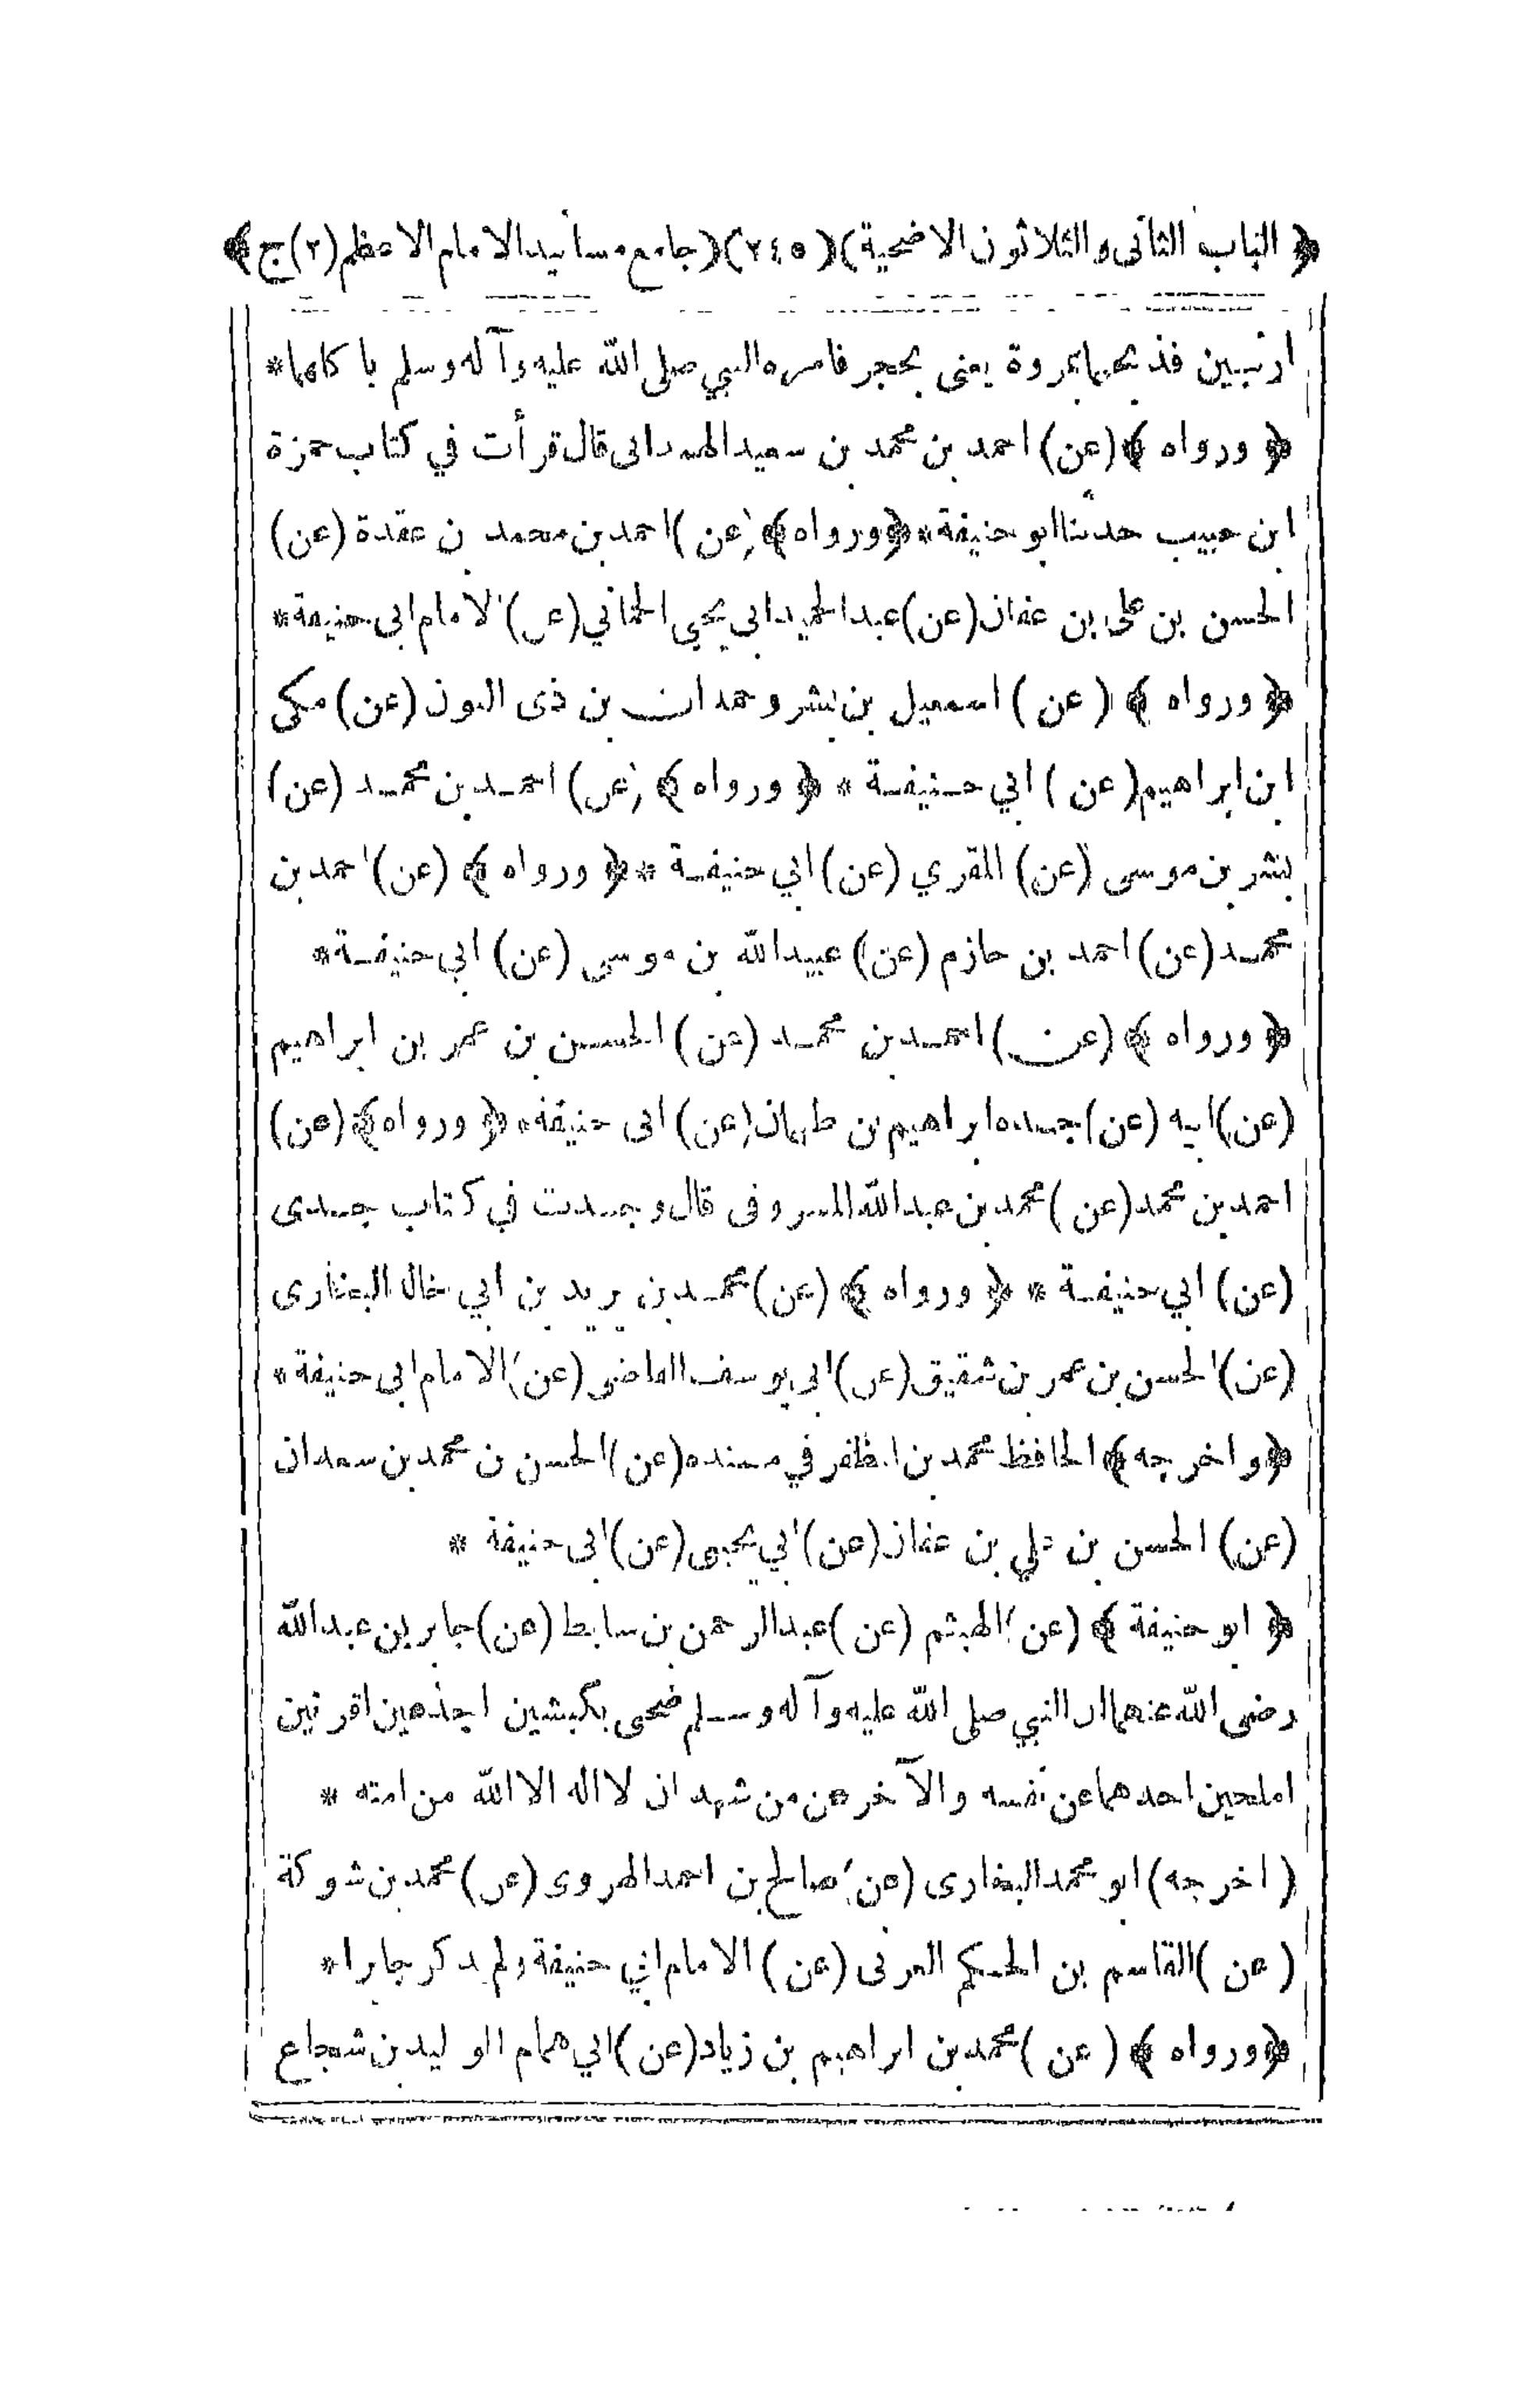 ﴿ الباب الثانى والثلاثون الاضحية) (٢٤٥) (جامع مسانيد الامام الاعظم (٢) ج﴾
ارنبين فذبحهما بمروة يعنى بحجر فامره النبي صلى الله عليه وآله وسلم باكلهما*
﴿ ورواه ﴾ (عن) احمد بن محمد بن سعيد الهمدانى قال قرأت في كتاب حمزة
ابن حبيب حدثنا ابو حنيفة* ﴿ورواه﴾ (عن) احمد بن محمد بن عقدة (عن)
الحسن بن على بن عفان (عن) عبد الحميد ابى يحيى الحمانى (عن) الامام ابى حنيفة*
﴿ ورواه ﴾ (عن) اسمعيل بن بشر وحمدان بن ذى النون (عن) مكى
ابن ابراهيم (عن) ابي حنيفة * ﴿ ورواه ﴾ (عن) احمد بن محمد (عن)
بشر بن موسى (عن) المقري (عن) ابي حنيفة * ﴿ ورواه ﴾ (عن) احمد بن
محمد (عن) احمد بن حازم (عن) عبيد الله بن موسى (عن) ابي حنيفة*
﴿ ورواه ﴾ (عن) احمد بن محمد (عن) الحسن بن عمر بن ابراهيم
(عن) ابيه (عن) جده ابراهيم بن طهمان (عن) ابى حنيفة* ﴿ ورواه ﴾ (عن)
احمد بن محمد (عن) محمد بن عبد الله المسروقى قال وجدت في كتاب جدى
(عن) ابي حنيفة * ﴿ ورواه ﴾ (عن) محمد بن يزيد بن ابي خالد البخارى
(عن) الحسن بن عمر بن شقيق (عن) ابى يوسف القاضى (عن) الامام ابى حنيفة*
﴿واخرجه﴾ الحافظ محمد بن المظفر في مسنده (عن) الحسن بن محمد بن سعدان
(عن) الحسن بن علي بن عفان (عن) ابي يحيى (عن) ابى حنيفة *
﴿ ابو حنيفة ﴾ (عن) الهيثم (عن) عبد الرحمن بن سابط (عن) جابر بن عبد الله
رضى الله عنهما ان النبي صلى الله عليه وآله وسلم ضحى بكبشين اجذعين اقرنين
املحين احدهما عن نفسه والآخر عن من شهد ان لا اله الا الله من امته *
(اخرجه) ابو محمد البخارى (عن) صالح بن احمد الهروى (عن) محمد بن شوكة
(عن) القاسم بن الحكم العرنى (عن) الامام ابي حنيفة ولم يذكر جابرا*
﴿ورواه ﴾ (عن) محمد بن ابراهيم بن زياد (عن) ابي همام الوليد بن شجاع